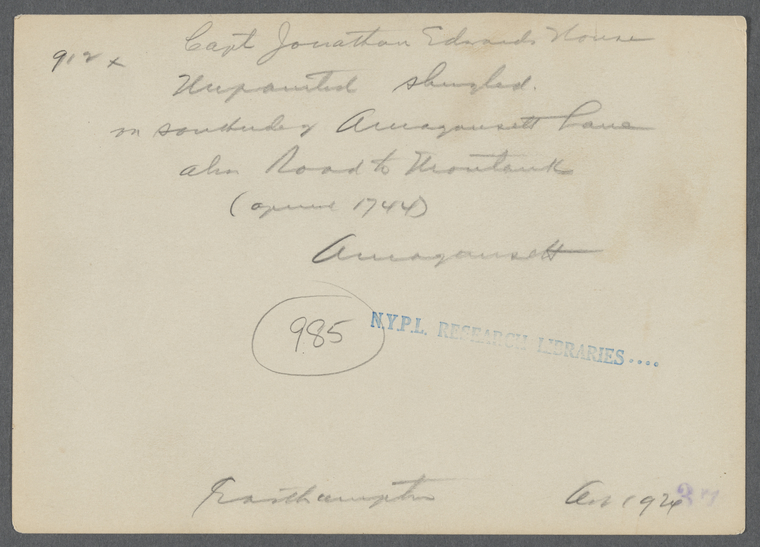 912 x Capt Jonathan Edwards House
Unpainted shingled.
on southside of Amagansett Lane
also Road to Montauk
(opened 1744)
Amagansett
985
N.Y.P.L. RESEARCH LIBRARIES....
Easthampton 192